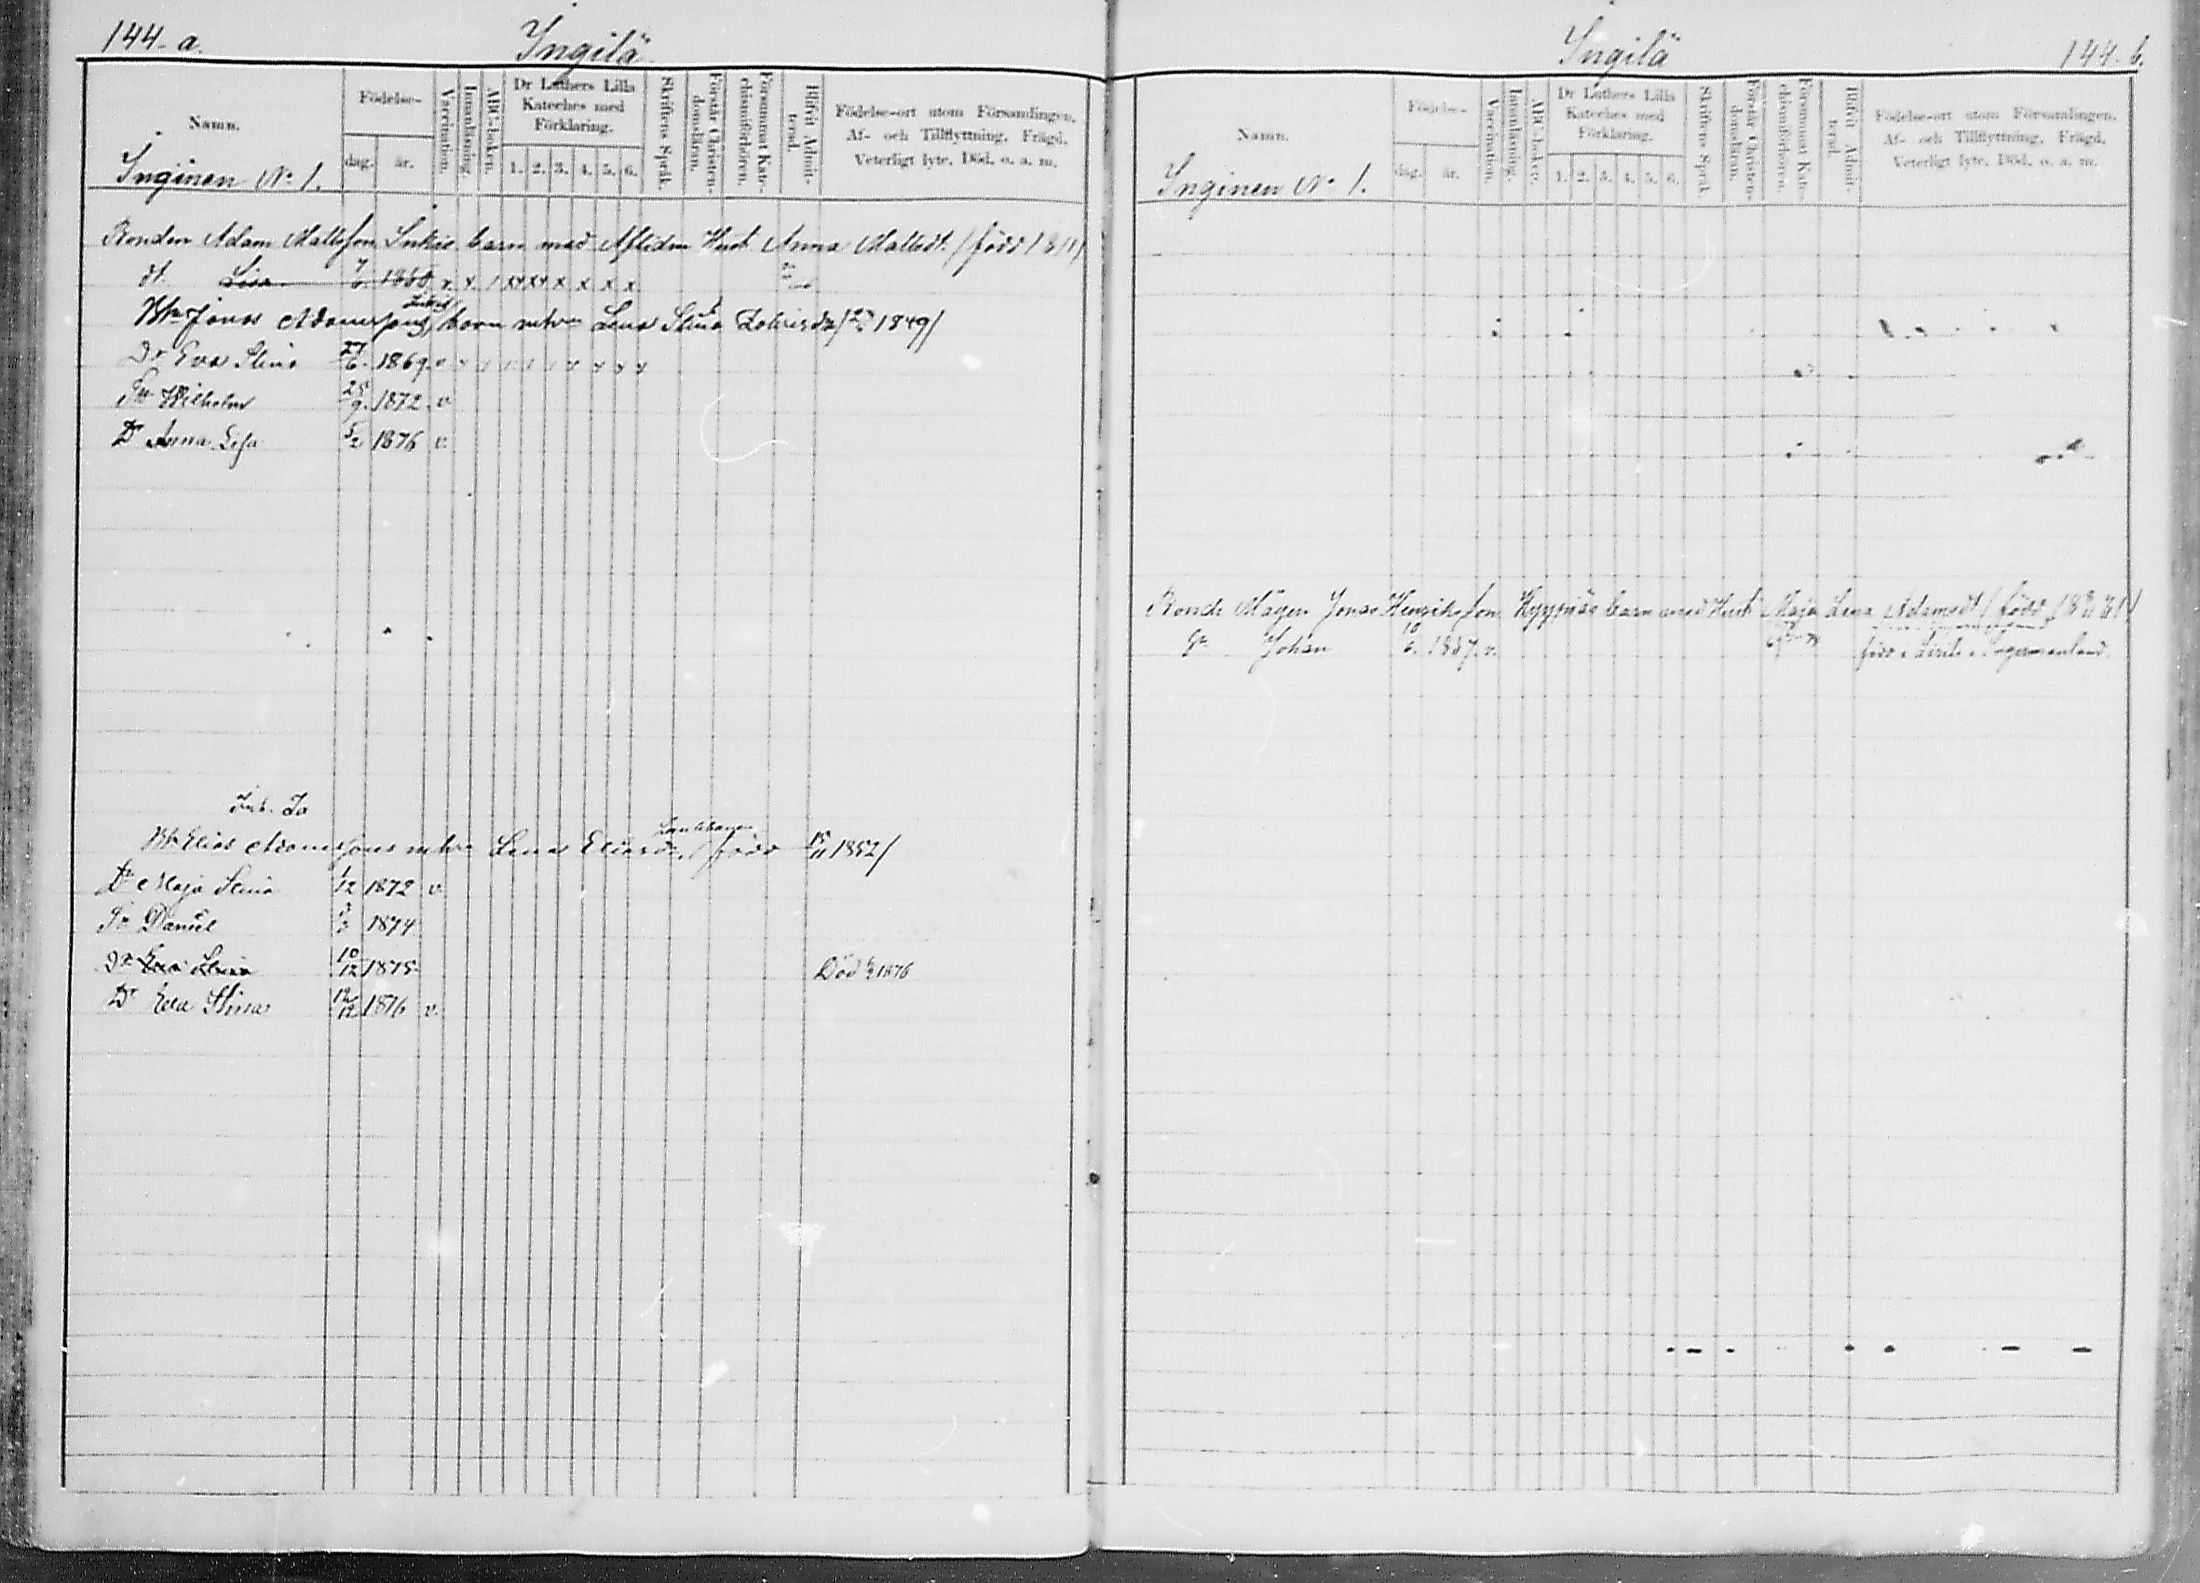 144. a.
Ingilä
Namn.
Födelse-
dag.
år.
Vaccination.
Innanläsning.
ABC-boken.
Dr Luthers Lilla Kateches med Förklaring.
1. 2. 3. 4. 5. 6.
Skriftens Språk.
Förstår Christendomsläran.
Försummat Katechismiförhören.
Blifvit Admitterad.
Födelse-ort utom Församlingen.
Af- och Tillflyttning. Frägd.
Veterligt lyte. Död. o. a. m.
Inginen No 1.
Bonden Adam Mattsson barn med Aflidne Hust. Anna Mattsdt. (född
dt. Lisa 1860 x x 1 xx xx x x x x
Jonas Adamsson barn Lena Stina 1849/
Dr Eva Stina 27/6. 1869. v
Sn Wilhelm 25/9. 1872. v.
Dr Anna Lisa 5/2 1876 v.
Elias Adamsson Lena född 15/11 1852/
Dr Maja Stina 1/12 1872 v.
Sn Daniel 1874
Dr Eva Stina 10/12 1875 Död 1876
Dr Eva Stina 12/12 1876 v.
Ingilä
144. b.
Namn.
Födelse-
dag.
år.
Vaccination.
Innanläsning.
ABC-boken.
Dr Luthers Lilla Kateches med Förklaring.
1. 2. 3. 4. 5. 6.
Skriftens Språk.
Förstår Christendomsläran.
Försummat Katechismiförhören.
Blifvit Admitterad.
Födelse-ort utom Församlingen.
Af- och Tillflyttning. Frägd.
Veterligt lyte. Död. o. a. m.
Inginen No 1.
Bonde Mågen Jonas Henriksson barn med Hust. Maja Lena Adamsdt (född
Johan 10/6. v. född i Ingermanland.